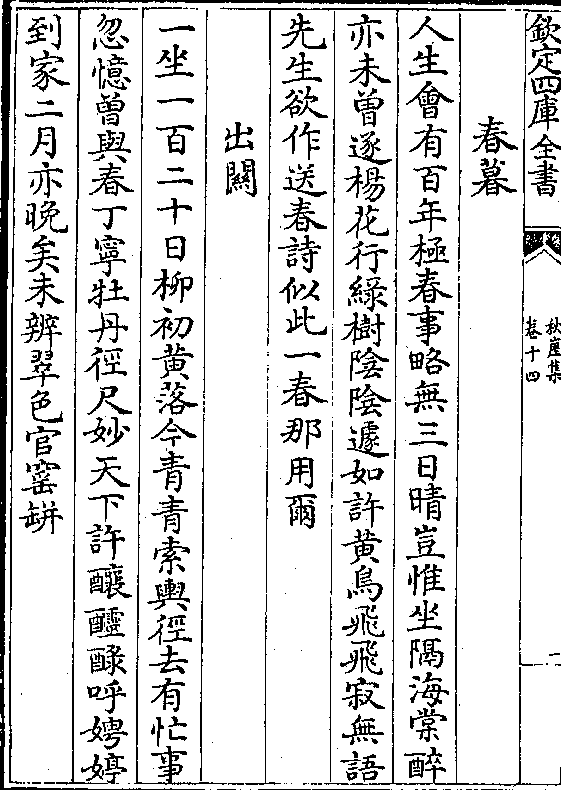 欽定四庫全書
秋崖集
卷十四
一
春暮
人生會有百年極春事略無三日晴豈惟坐隔海棠醉
亦未曾逐楊花行綠樹陰陰遽如許黃鳥飛飛寂無語
先生欲作送春詩似此一春那用爾
出關
一坐一百二十日柳初黃落今青青索輿徑去有忙事
忽憶曾與春丁寧牡丹徑尺妙天下許釀醽醁呼娉婷
到家二月亦晚矣未辨翠色官窰缾